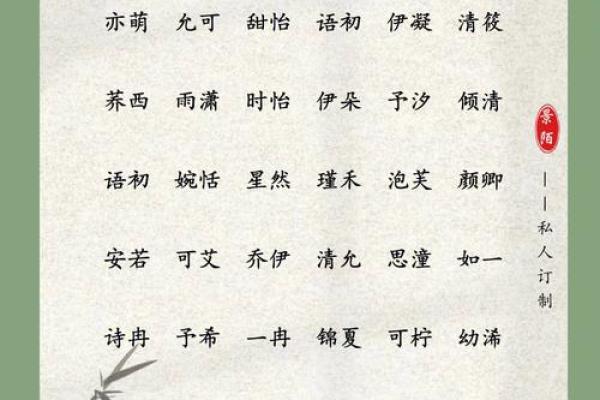 亦萌 允可 甜怡 语初 伊凝 清筱
荞西 雨潇 时怡 伊朵 予汐 倾清
语初 婉恬 星然 瑾禾 泡芙 颜卿
安若 可艾 乔伊 清允 思潼 如一
诗冉 予希 一冉 锦夏 可柠 幼浠
景陌
——私人订制